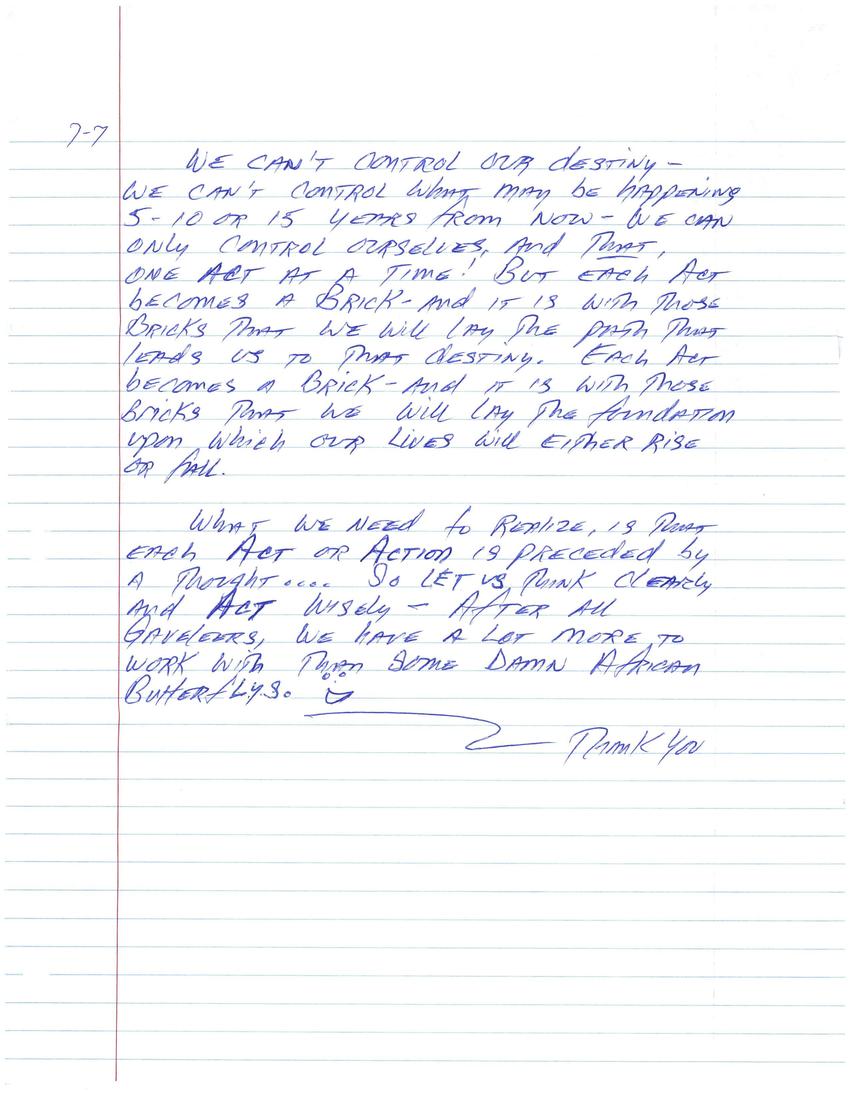 7-7
We can't control our destiny -
we can't control what may be happening
5-10 or 15 years from now - we can
only control ourselves, and that,
one act at a time! But each act
becomes a brick - and it is with those
bricks that we will lay the path that
leads us to that destiny. Each act
becomes a brick - and it is with those
bricks that we will lay the foundation
upon which our lives will either rise
or fall.
What we need to realize, is that
each Act or Action is preceded by
a thought.... So let us think clearly
and Act wisely - After all
Gaveleers, we have a lot more to
work with than some damn African
Butterflys.
Thank you